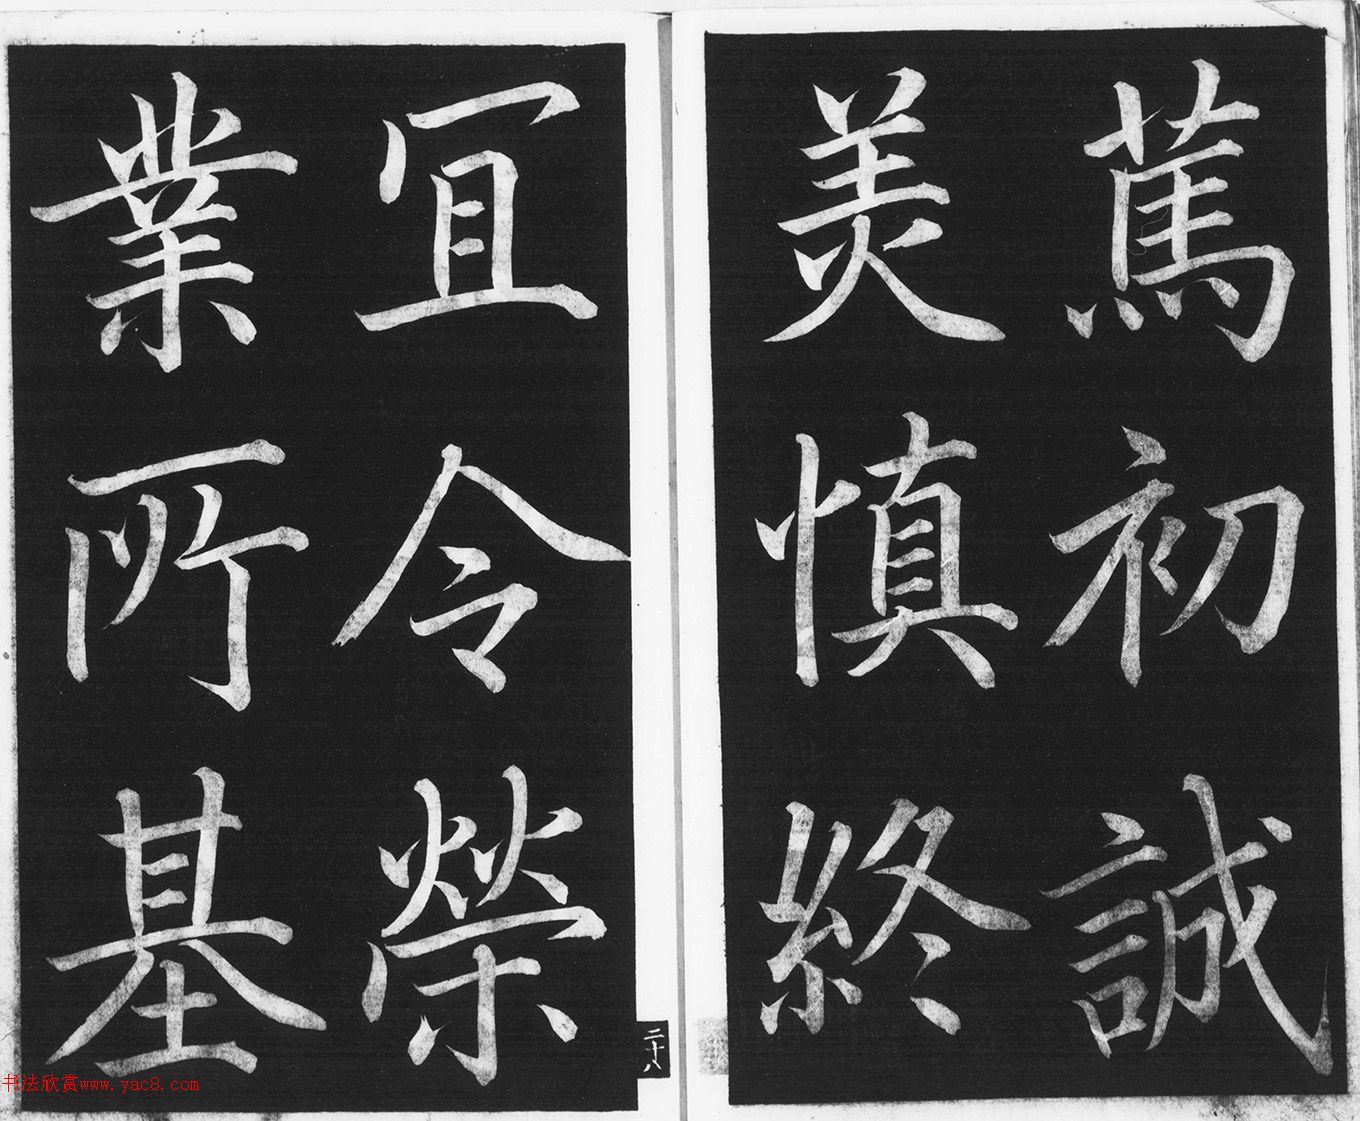 蔫初誠
美慎終
冝令榮
業所基
二十八
书法欣赏www.yac8.com